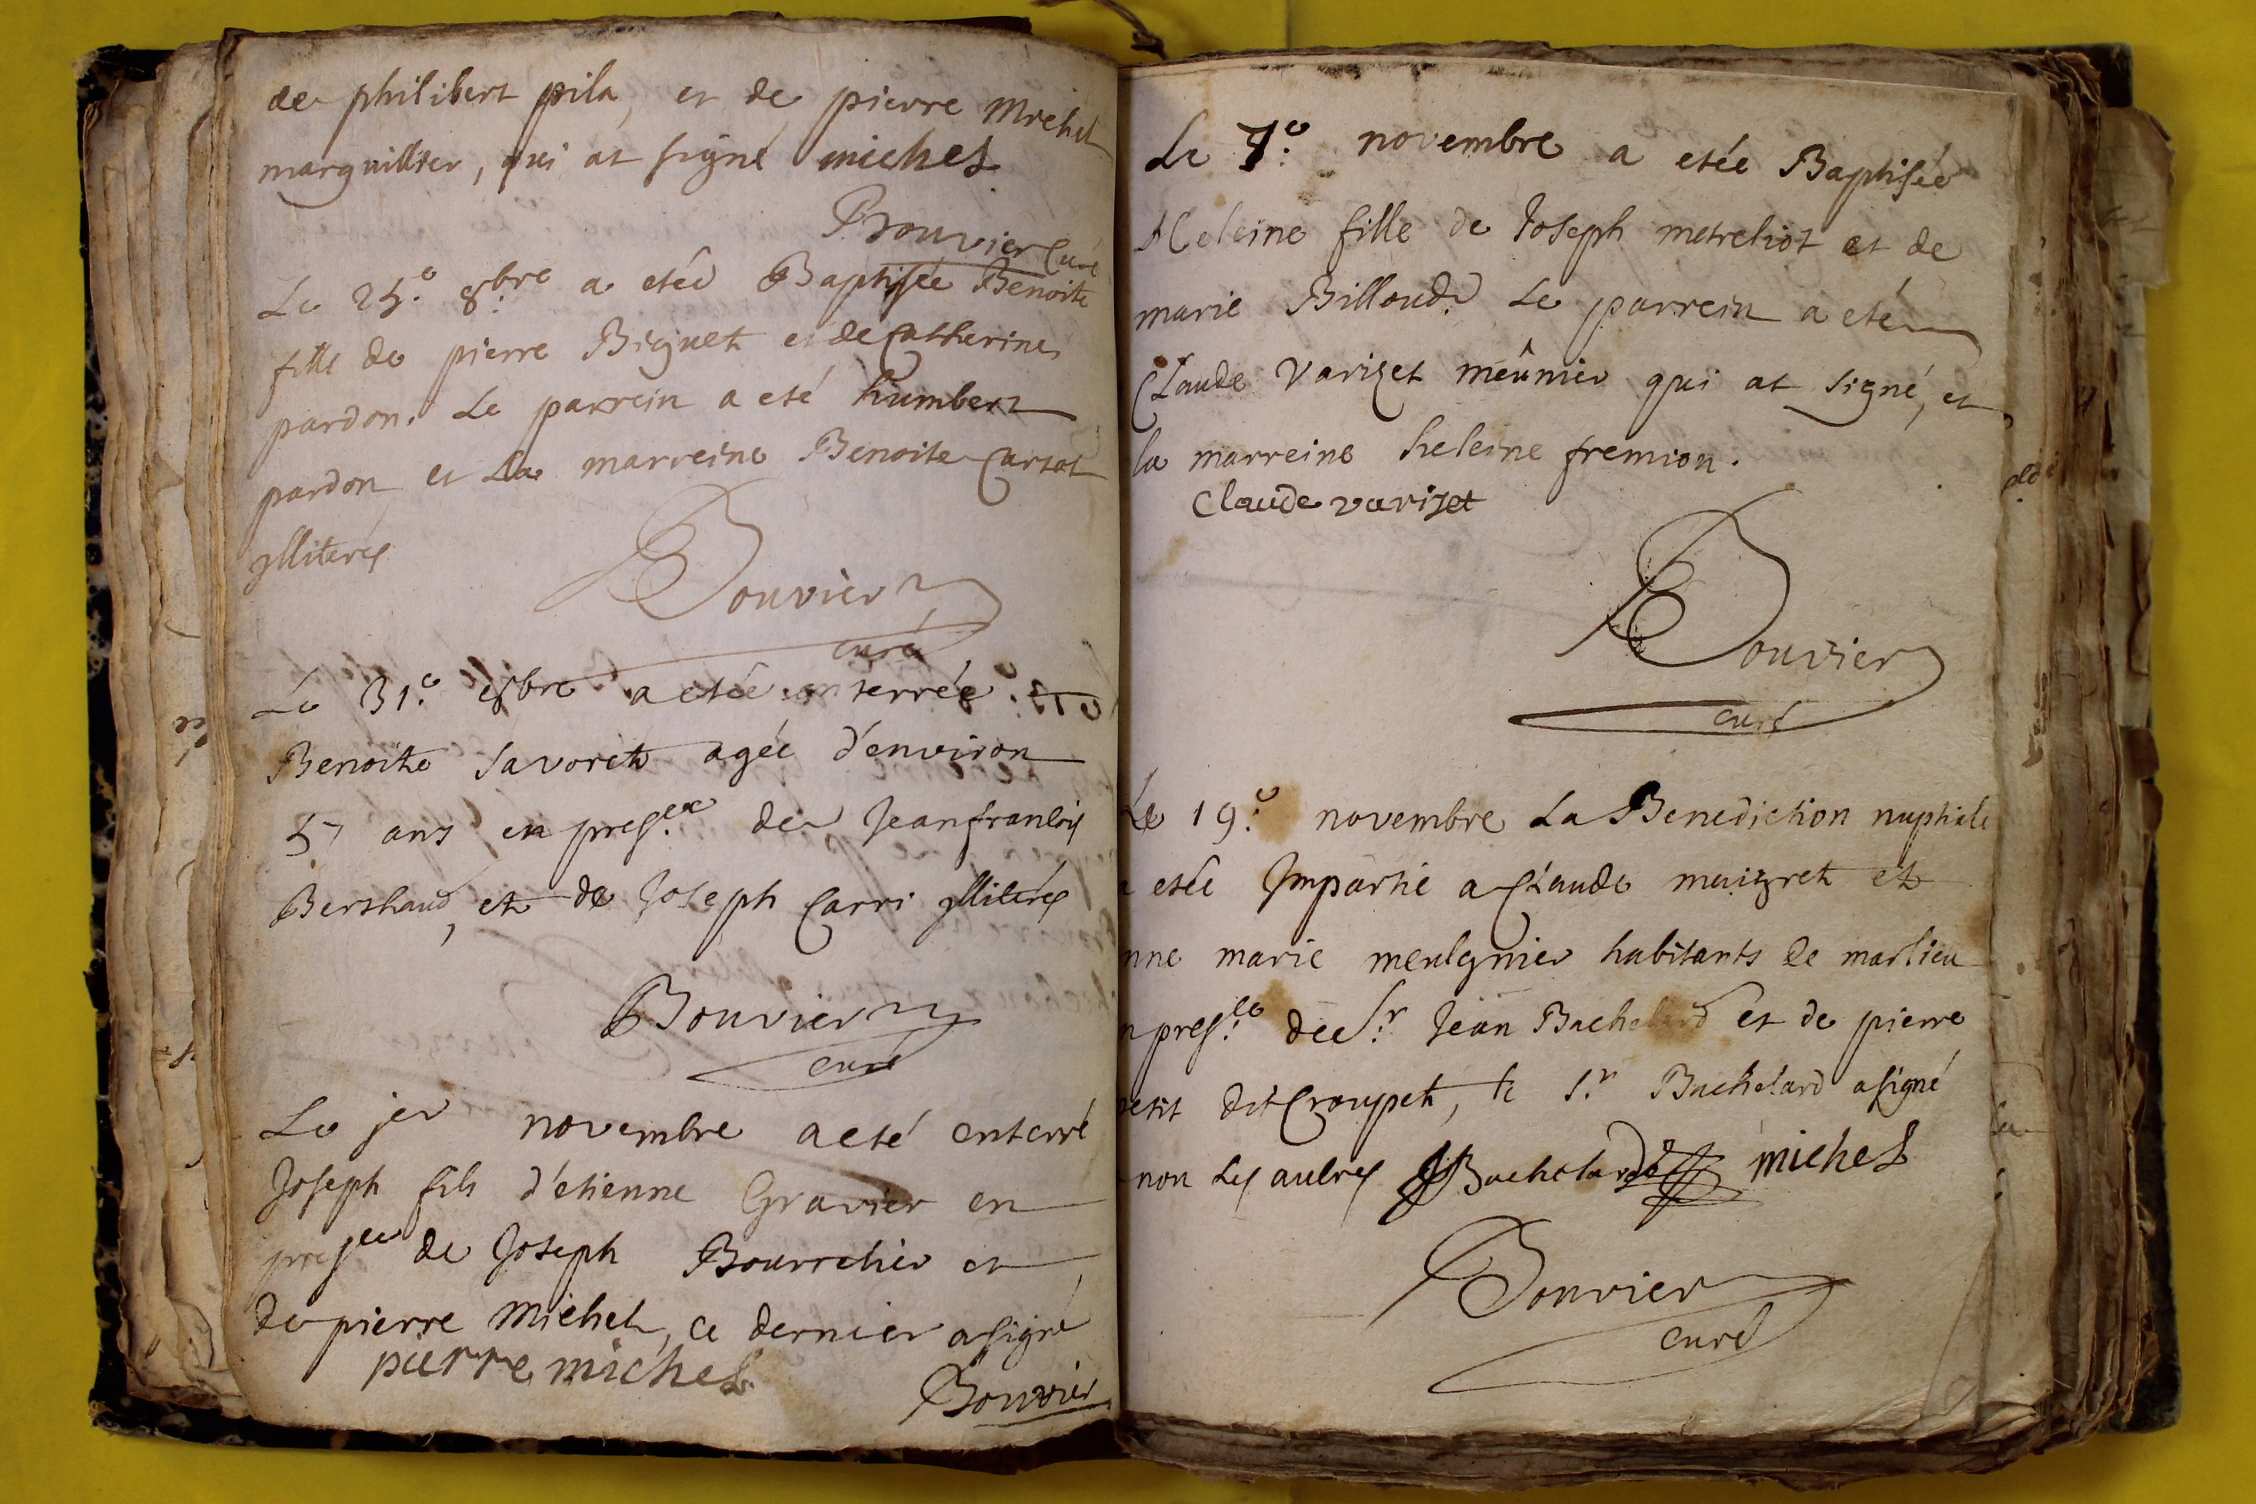 de philibert pila, et de pierre Michel
marguillier, qui at signé michel
Bouvier Curé
Le 25e. 8bre a etée Baptisée Benoite
fille de pierre Biguet et de Catherine
pardon. Le parrein a eté humbert
pardon et La marreine Benoite Cartat
ylliterés
Bouvier
curé
Le 31e. 8bre a etée enterrée
Benoite Savoret agée d'environ
57 ans en presce de Jeanfranćois
Berthaud, et de Joseph Carri yllitérés
Bouvier
curé
Le jer novembre a eté enterré
Joseph fils d'etienne Gravier en
presce de Joseph Bourrelier et
de pierre Michel, ce dernier a signé
pierre michel
Bouvier
Le 7e. novembre a etée Baptisée
Heleine fille de Joseph metreliot et de
marie Billoud. Le parrein a eté
Claude Varizet meûnier qui at signé, et
la marreine heleine fremion.
Claude varizet
Bouvier
curé
Le 19e. novembre La Benediction nuptiale
a etée Jmpartie a Claude maigret et
nne marie meulgnier habitants de marlieu
n presce. de Sr. Jean Bachelard et de pierre
petit dit Croupet, le Sr Bachelard a signé
non Les autres JBachelard michel
Bouvier
curé